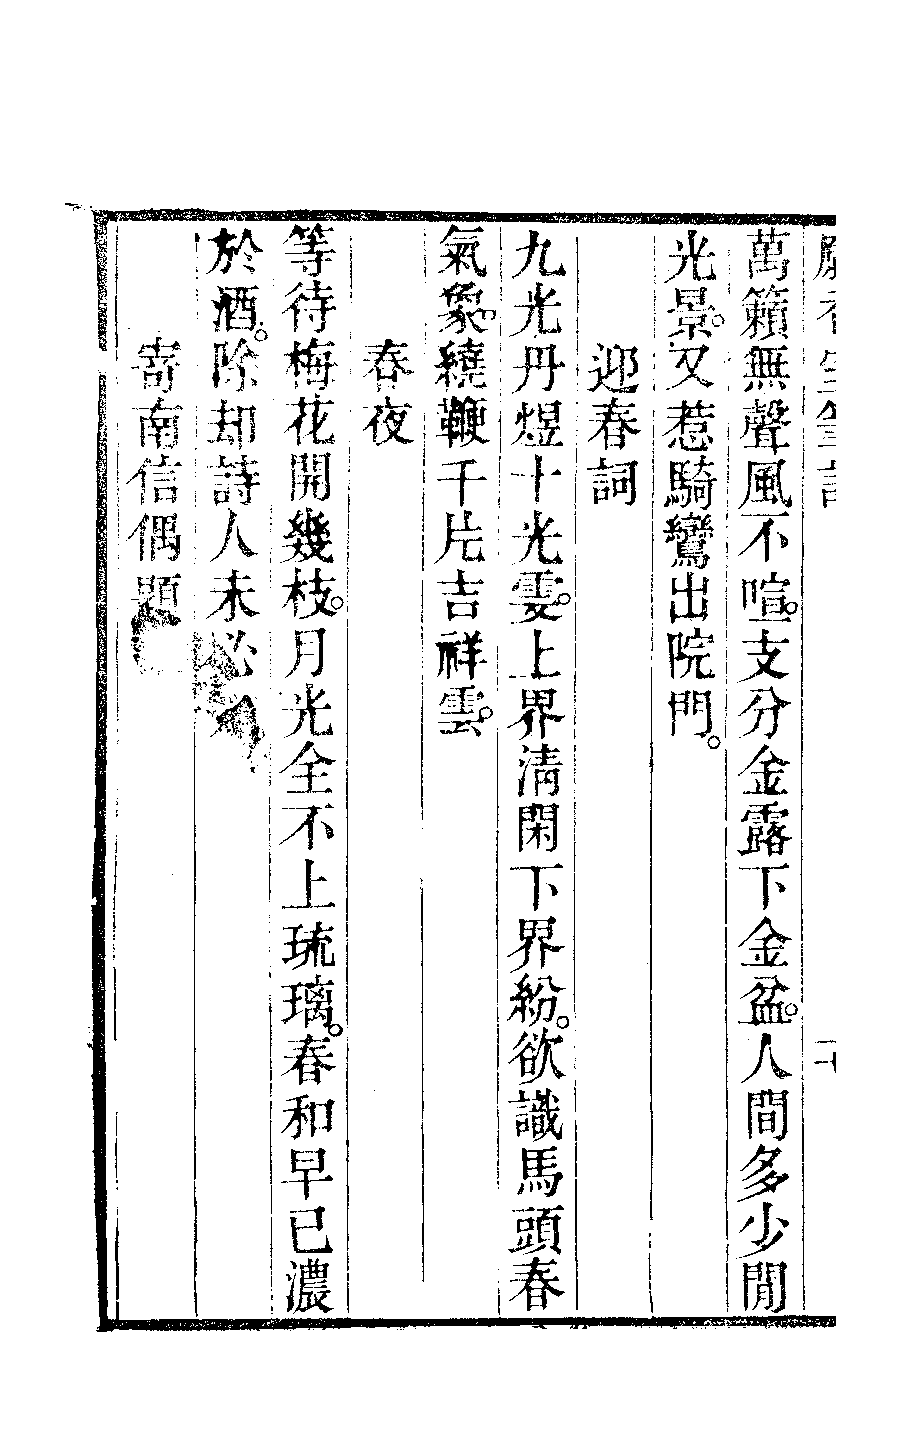 萬籟無聲風不喧。支分金露下金盆。人間多少閒
光景。又惹騎鸞出院門。
迎春詞
九光丹煜十光雯。上界淸閑下界紛。欲識馬頭春
氣象。繞鞭千片吉祥雲。
春夜
等待梅花開幾枝。月光全不上琉璃。春和早已濃
於酒。除却詩人未必
寄南信偶題